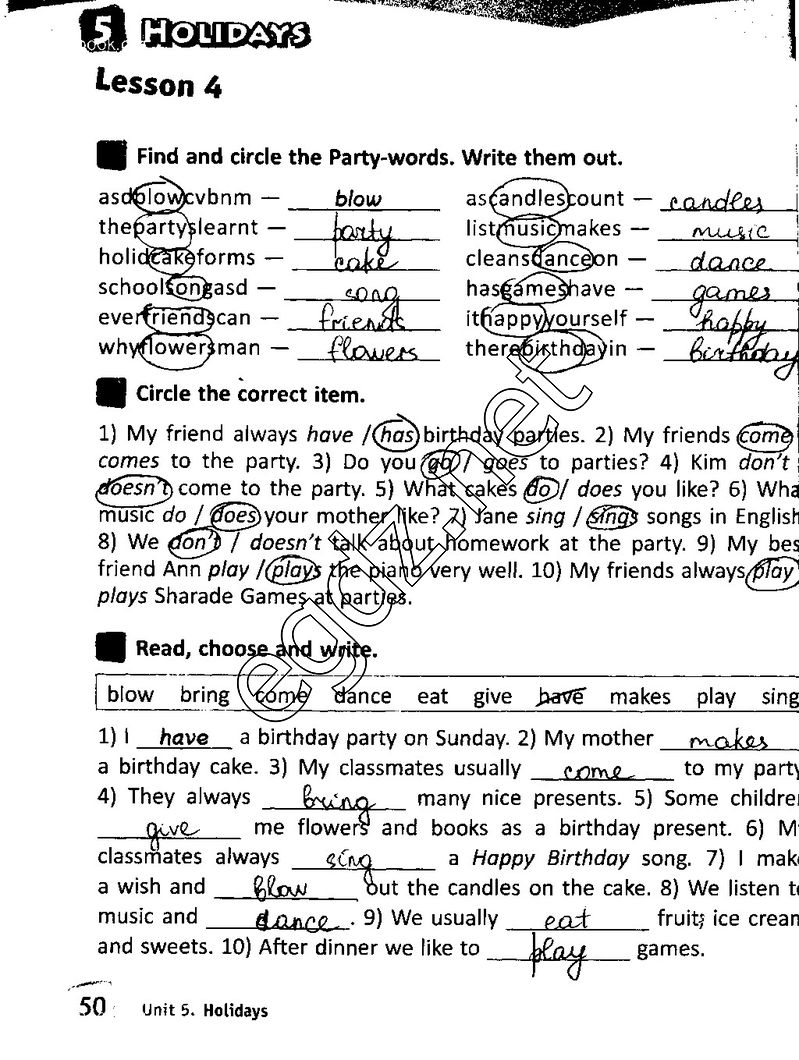 5 HOLIDAYS
Lesson 4
Find and circle the Party-words. Write them out.
asdblowcvbnm — blow ascandlescount — candles
thepartyslearnt — party listmusicmakes — music
holidcakeforms — cake cleansdanceon — dance
schoolsongasd — song hasgameshave — games
everfriendscan — friends ithappyyourself — happy
whyflowersman — flowers therebirthdayin — birthday
Circle the correct item.
1) My friend always have / has birthday parties. 2) My friends come
comes to the party. 3) Do you go / goes to parties? 4) Kim don't
doesn't come to the party. 5) What cakes do / does you like? 6) Wha
music do / does your mother like? 7) Jane sing / sings songs in English
8) We don't / doesn't talk about homework at the party. 9) My bes
friend Ann play / plays the piano very well. 10) My friends always play
plays Sharade Games at parties.
Read, choose and write.
blow bring come dance eat give have makes play sing
1) I have a birthday party on Sunday. 2) My mother makes
a birthday cake. 3) My classmates usually come to my party
4) They always bring many nice presents. 5) Some children
give me flowers and books as a birthday present. 6) M
classmates always sing a Happy Birthday song. 7) I make
a wish and blow out the candles on the cake. 8) We listen to
music and dance. 9) We usually eat fruit, ice cream
and sweets. 10) After dinner we like to play games.
50 Unit 5. Holidays
egdz.net